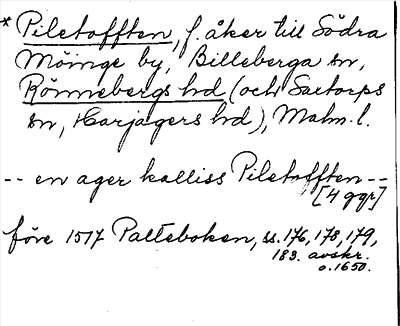 * Piletofften, f. åker till Södra
Möinge by, Billeberga sn,
Rönnebergs hd (och Saxtorps
sn, Harjagers hd), Malm. l.
-- en ager kalliss Piletofften --
[4 ggr]
före 1517 Palteboken, ss. 176, 178, 179,
183. avskr.
o. 1650.